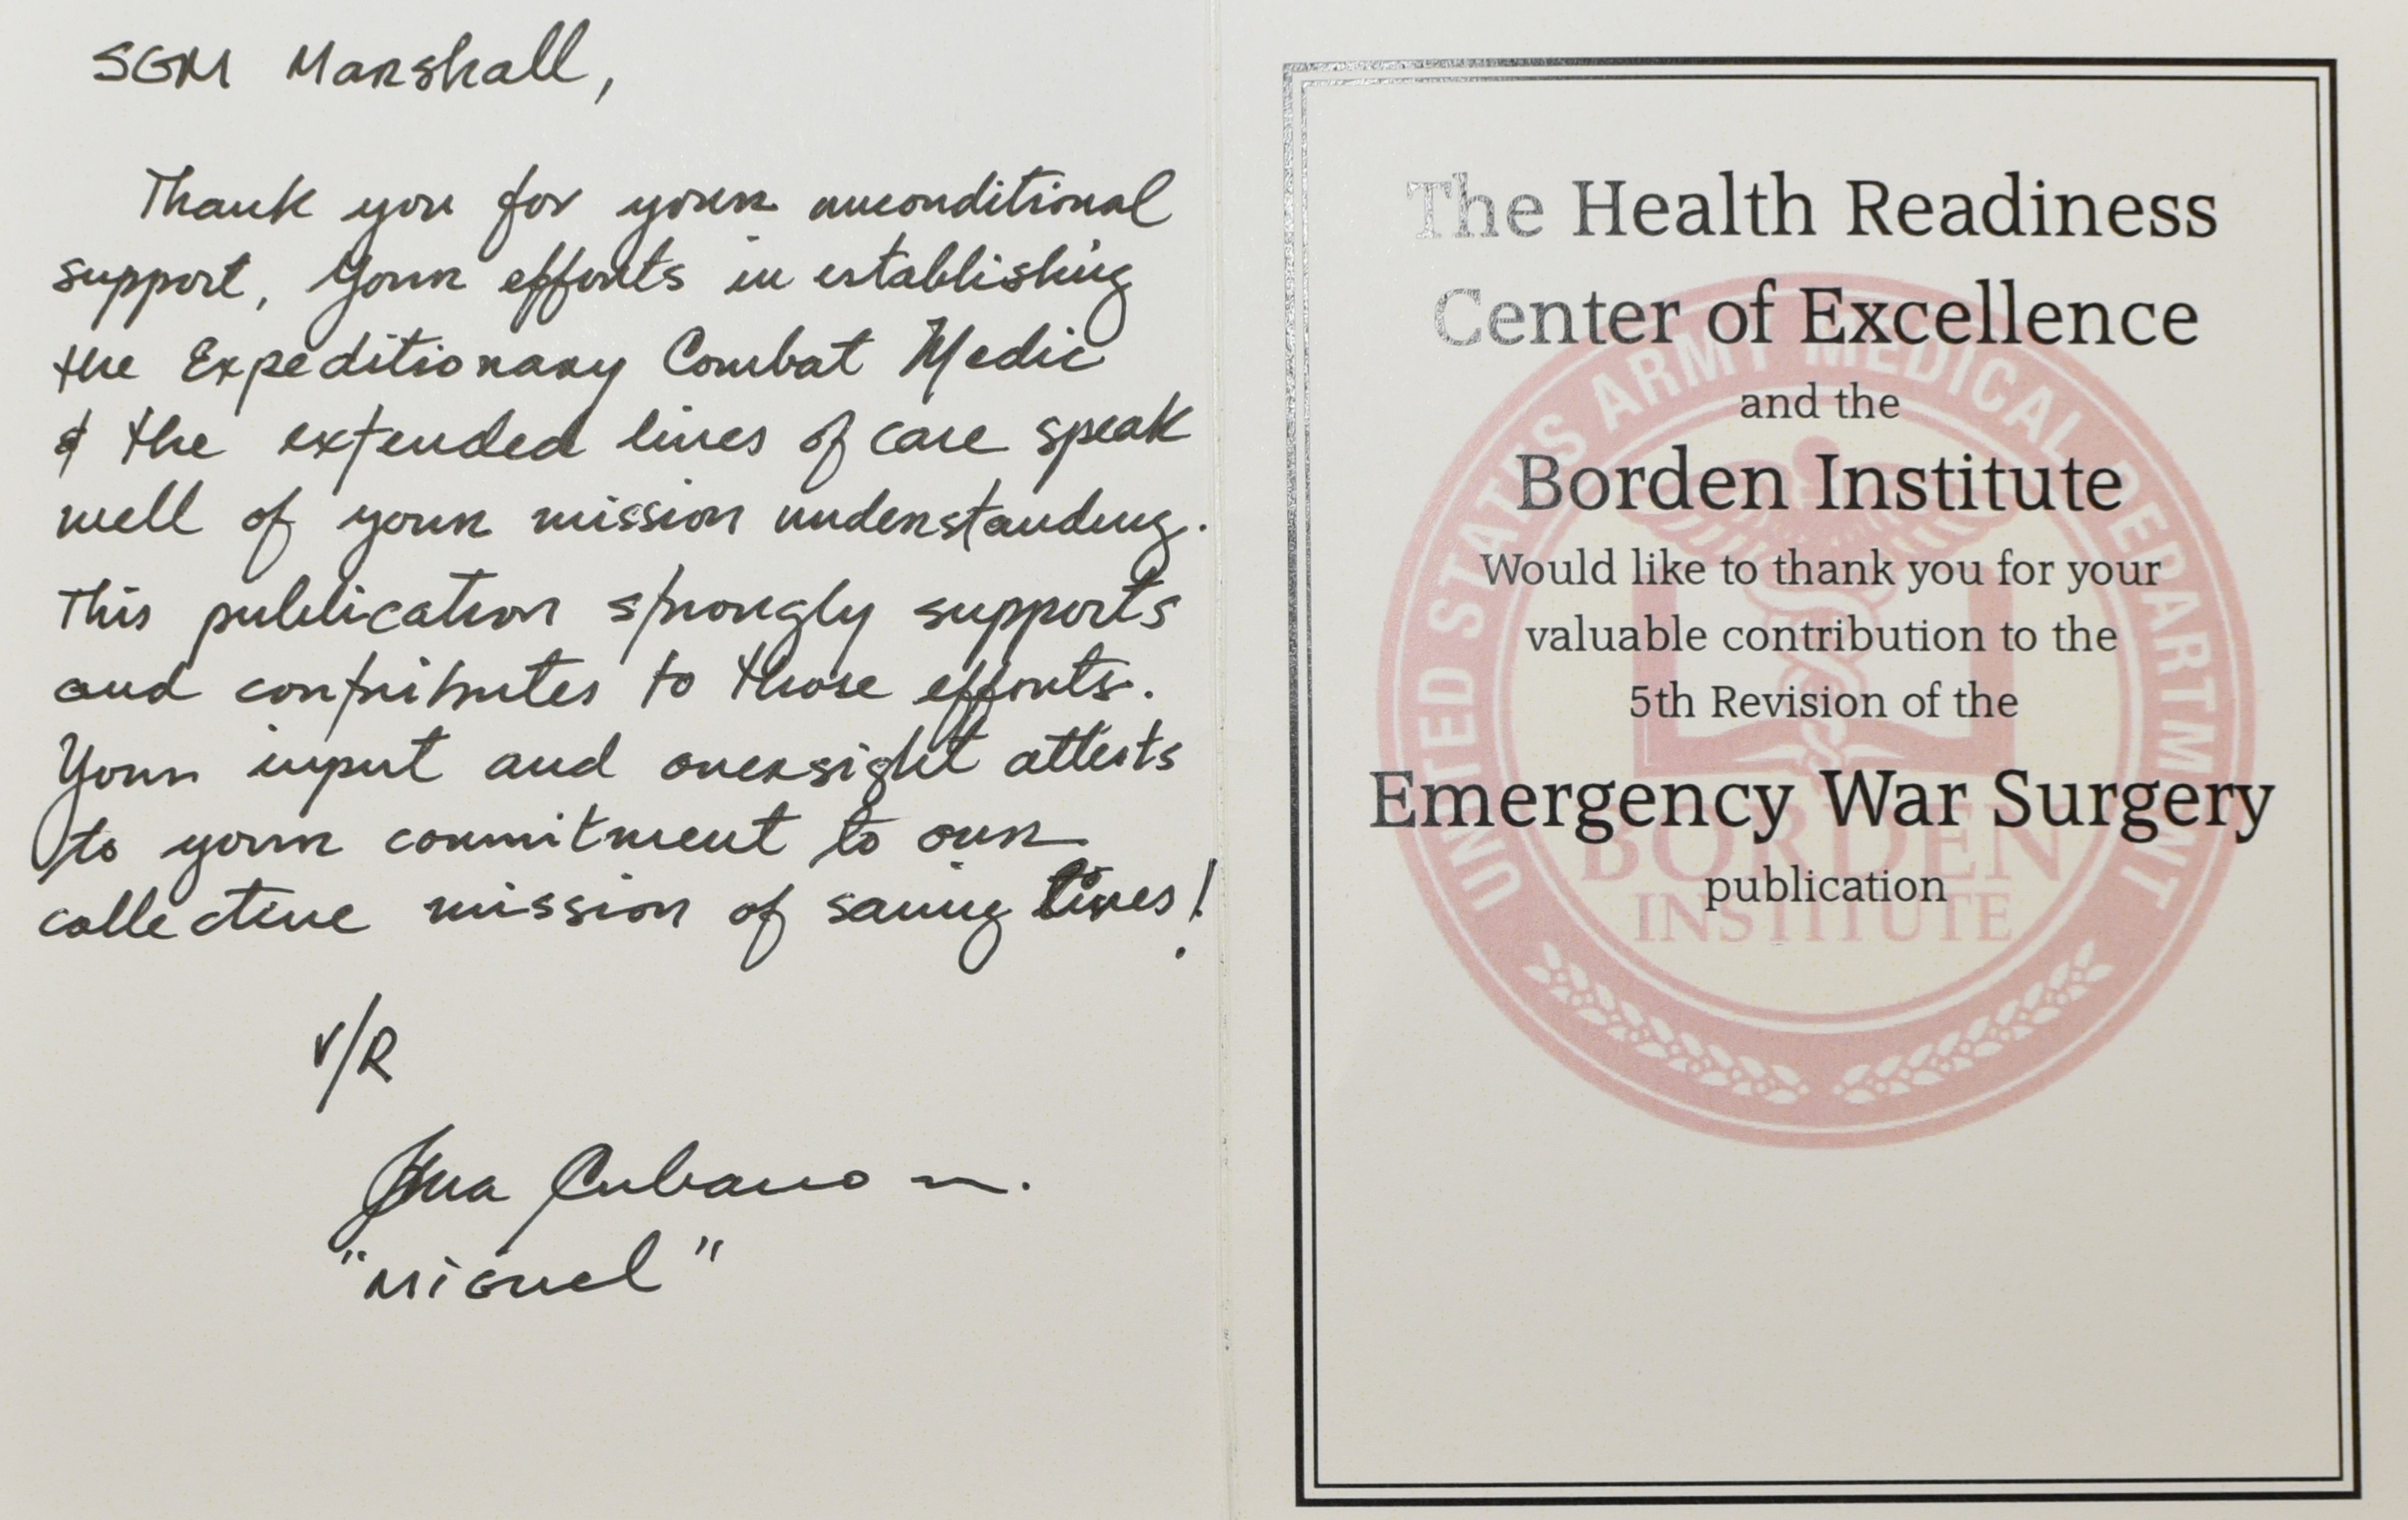 SGM Marshall,
Thank you for your unconditional
support, Your efforts in establishing
the Expeditionary Combat Medic
& the extended lines of care speak
well of your mission understanding.
This publication strongly supports
and contributes to those efforts.
Your input and oversight attests
to your commitment to our
collective mission of saving lives!
V/R
Cubano
"Miguel"
The Health Readiness
Center of Excellence
and the
Borden Institute
Would like to thank you for your
valuable contribution to the
5th Revision of the
Emergency War Surgery
publication
UNITED STATES ARMY MEDICAL DEPARTMENT
BORDEN
INSTITUTE